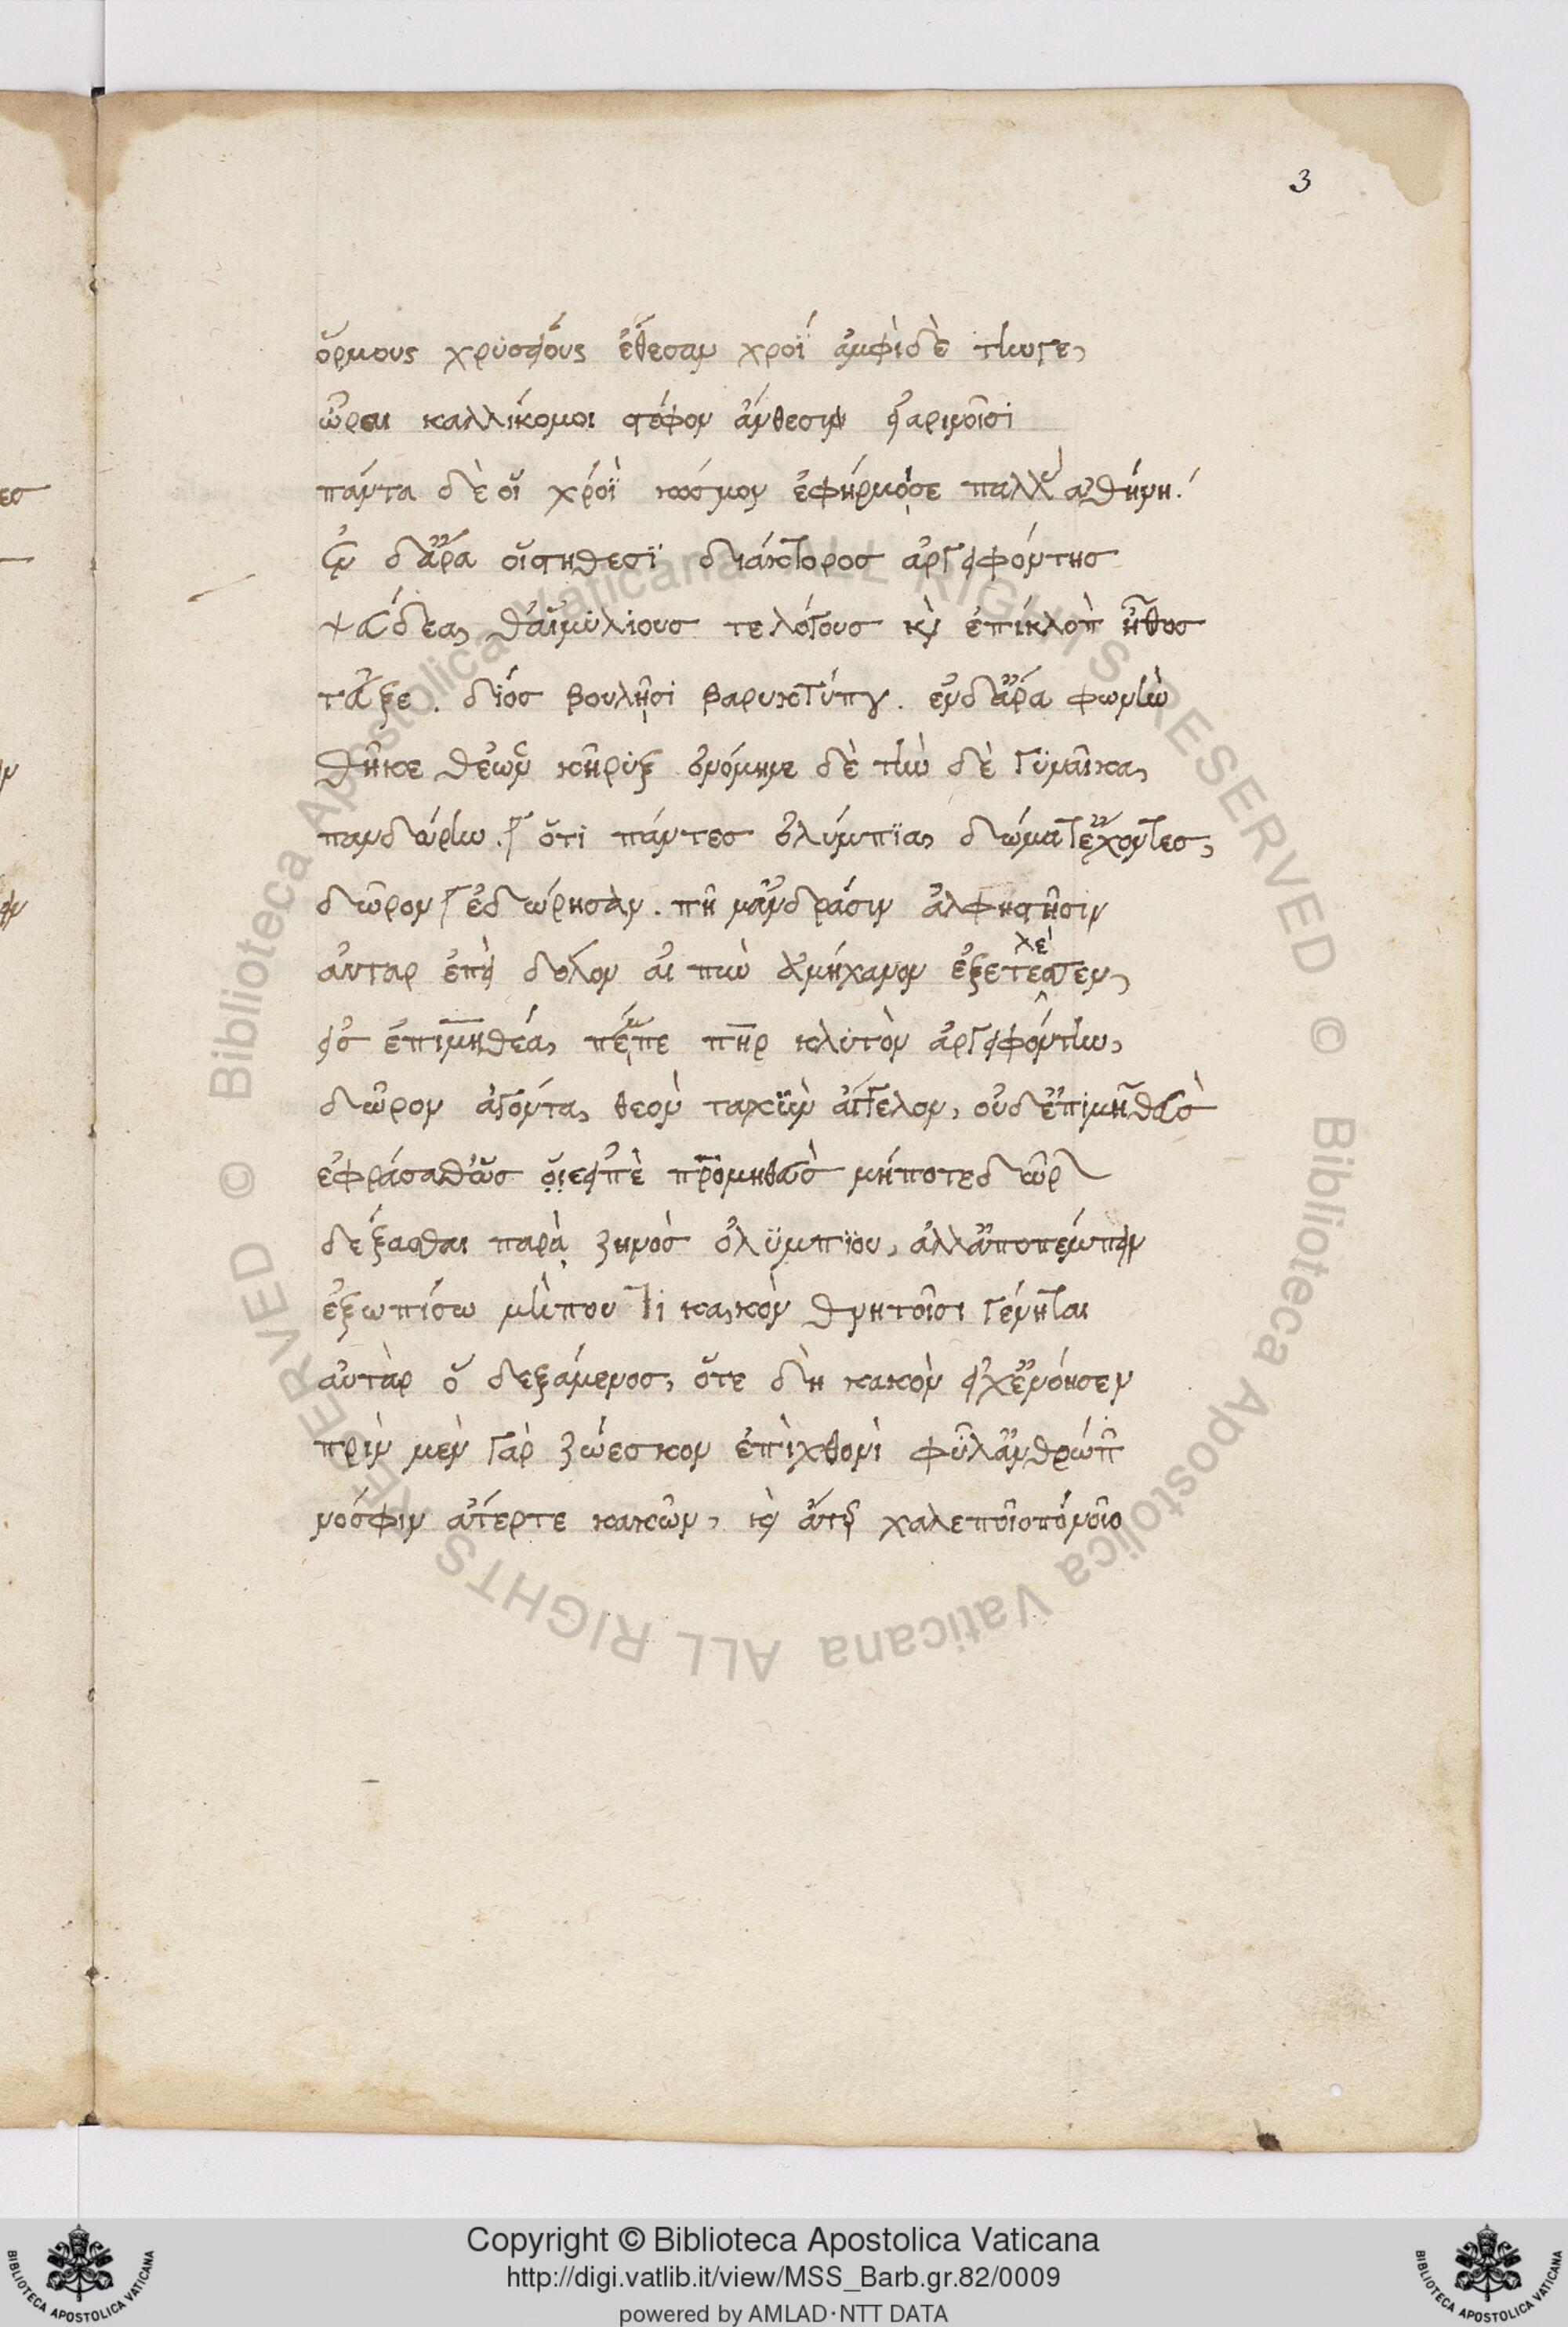 3
ὅρμους χρυσείους ἔθεσαν χροΐ ἀμφὶδὲ τήνγε,
ὧραι καλλίκομοι στέφον ἄνθεσιν εἰαρινοῖσι
πάντα δὲ οἵ χρόϊ κόσμον ἐφήρμοσε παλλὰς ἀθήνη.
ἐν δἄρα οἵ στήθεσϊ διάκτορος ἀργειφόντης
ψεύδεα, θ' αἱμυλίους τε λόγους καὶ ἐπίκλοπον ἦθος
τεῦξε. διός βουλῆσι βαρυκτύπου. ἐν δἄρα φωνὴν
θῆκε θεῶν κῆρυξ ὀνόμηνε δὲ τὴν δὲ γυναῖκα,
πανδώρην. ὅτι πάντες ὀλύμπϊα, δώματ' ἔχοντες,
δῶρον ἐδώρησαν. πῆμ' ἀνδράσιν ἀλφηστῆσιν
αὐταρ ἐπεὶ δόλον αἰπὺν ἀμήχανον ἐξετέλεσσεν,
εἰς ἐπιμηθέα, πέμπε πατὴρ κλυτὸν ἀργειφόντην,
δῶρον ἄγοντα, θεοὺν ταχὺν ἄγγελον, οὐδ' ἐπιμηθεὺς
ἐφράσαθ' ὥς οἱ ἔειπε προμηθεὺς μήποτε δῶρον
δέξασθαι παρὰ ζηνὸς ὀλυμπΐου, ἀλλ' ἀποπέμπειν
ἐξωπίσω μήπου τι κακὸν θνητοῖσι γένηται
αὐτὰρ ὅ δεξάμενος, ὅτε δὴ κακὸν εἶχ' ἐνόησεν
πρὶν μὲν γὰρ ζώεσκον ἐπὶχθονὶ φῦλ' ἀνθρώπων
νόσφιν ἄτερτε κακῶν, καὶ ἄτερ χαλεποῖο πόνοιο
Copyright © Biblioteca Apostolica Vaticana
http://digi.vatlib.it/view/MSS_Barb.gr.82/0009
powered by AMLAD·NTT DATA